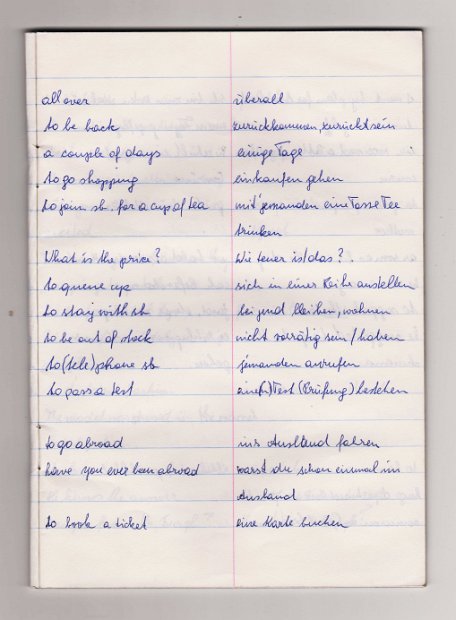 all over überall
to be back zurückkommen, zurück sein
a couple of days einige Tage
to go shopping einkaufen gehen
to join sb. for a cup of tea mit jemanden eine Tasse Tee
trinken
What is the price? Wie teuer ist das?
to queue up sich in einer Reihe anstellen
to stay with sb bei jmd bleiben, wohnen
to be out of stock nicht vorrätig sein / haben
to (tele)phone sb jemanden anrufen
to pass a test eine(n) Test (Prüfung) bestehen
to go abroad ins Ausland fahren
have you ever been abroad warst du schon einmal im
Ausland
to book a ticket eine Karte buchen